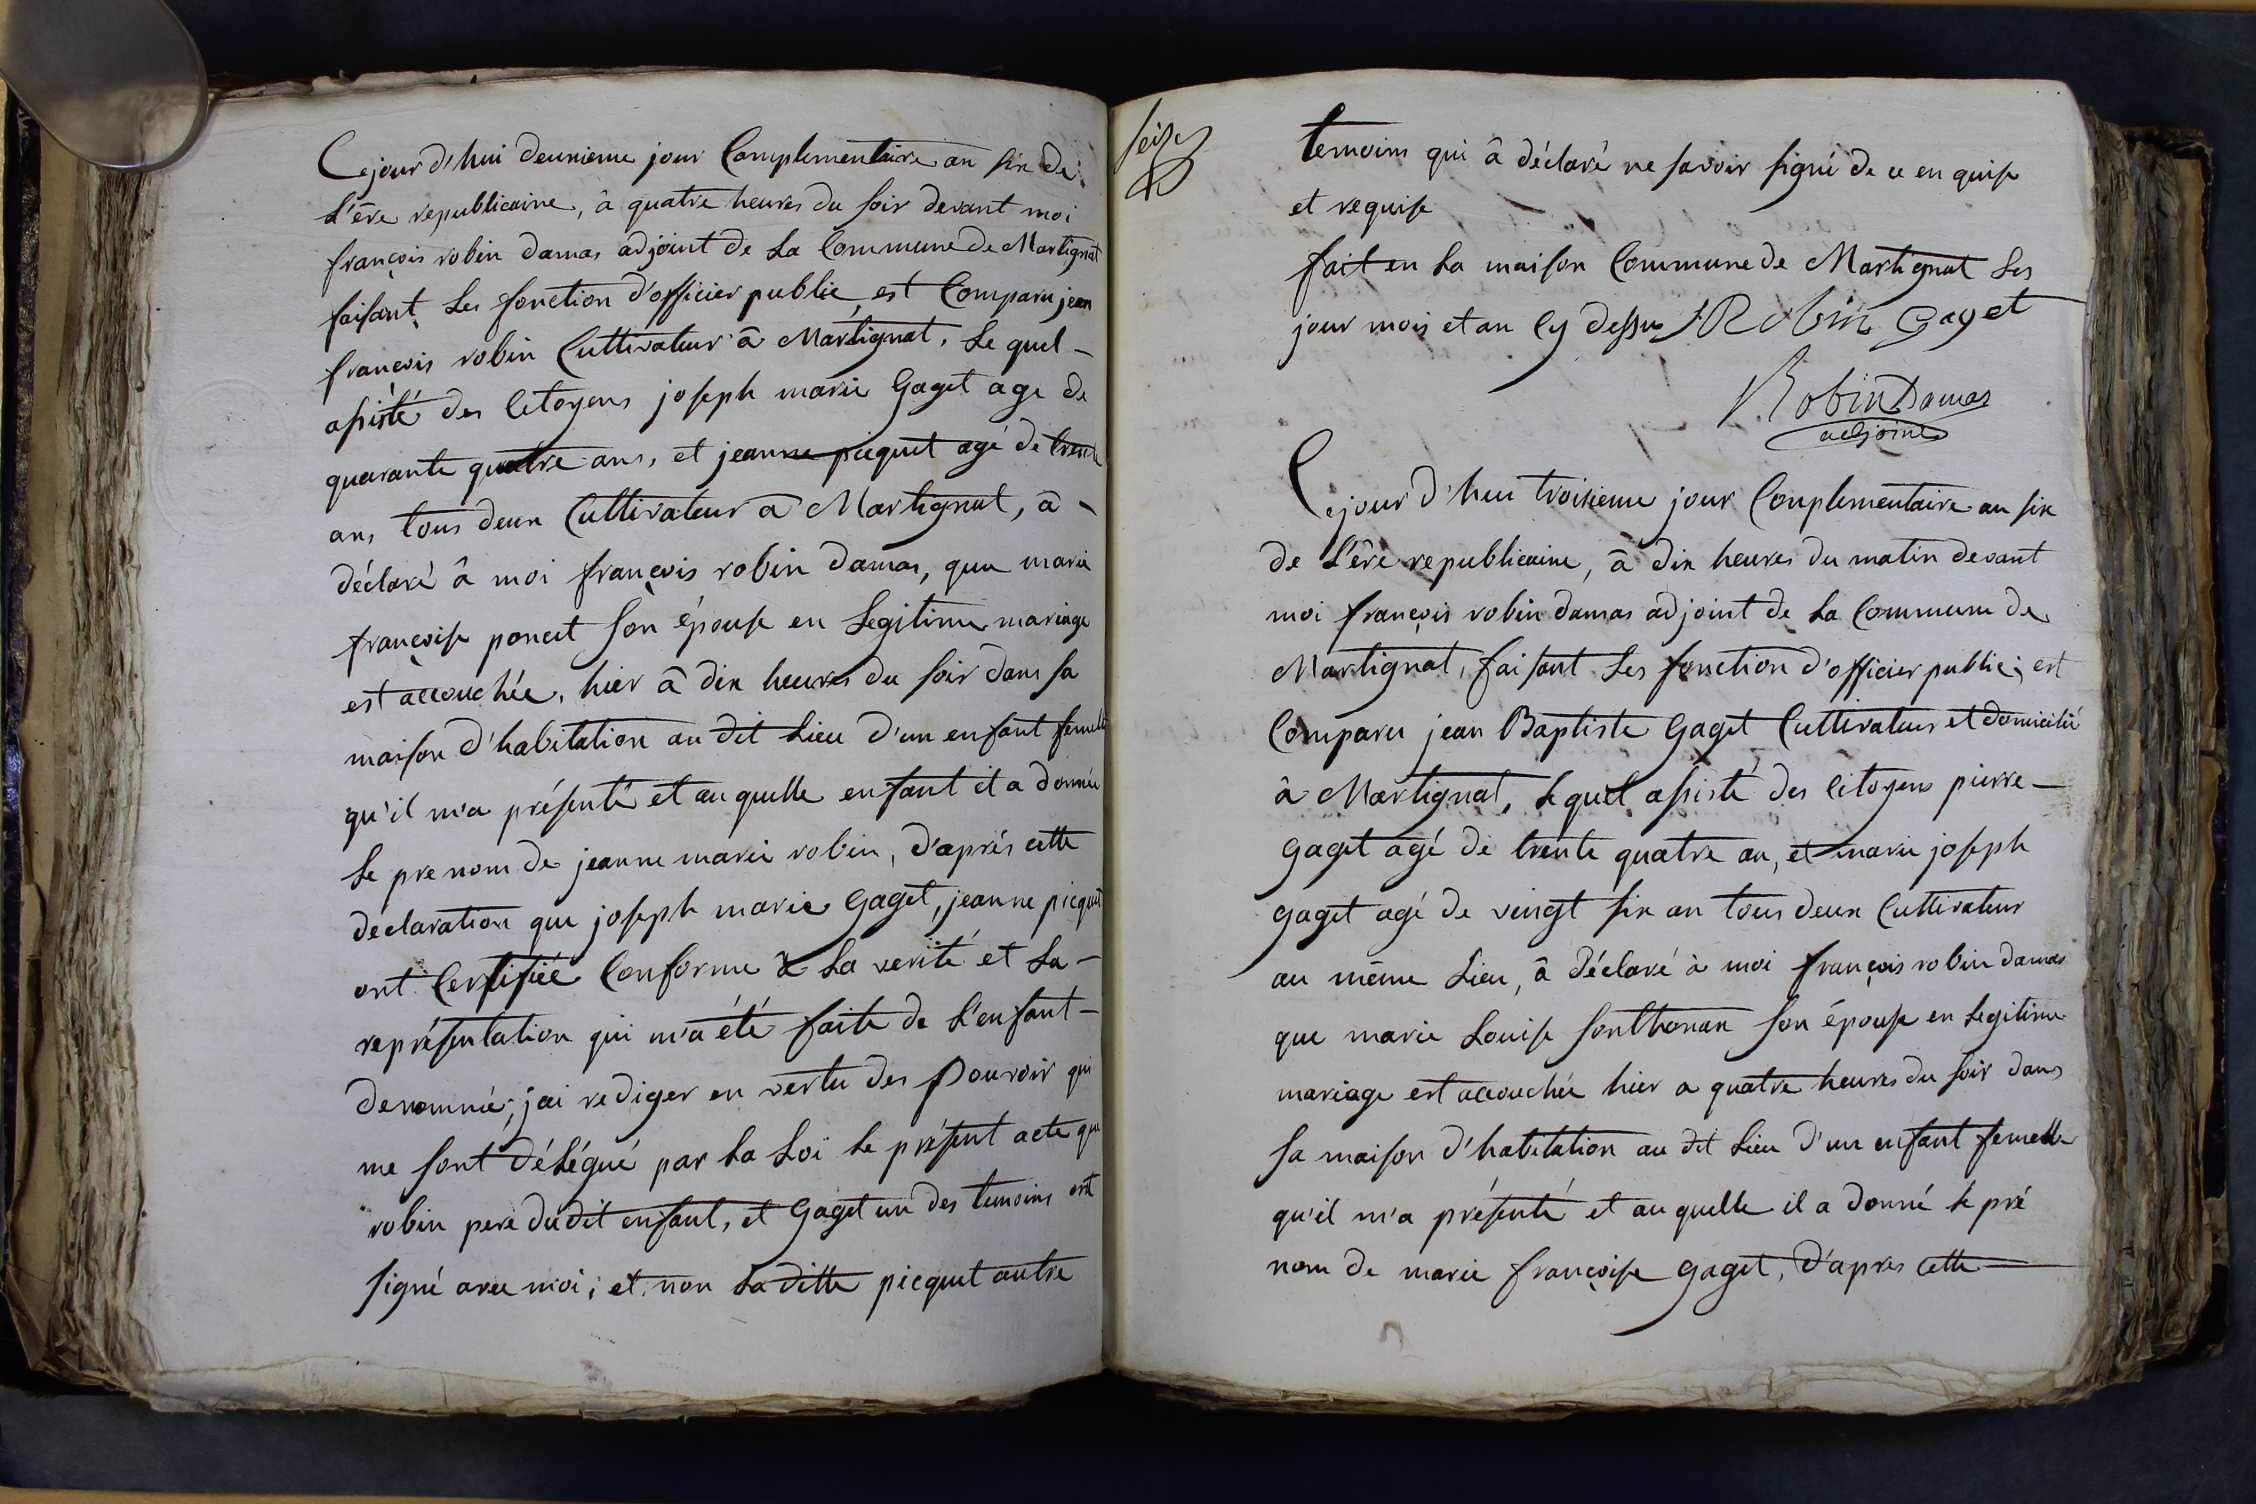 Cejour d'hui deuxieme jour Complementaire an six de
L'ère republicaine, â quatre heures du soir devant moi
françois robin damas adjoint de La Commune de Martignat
faisant Les fonction d'officier public, est Comparu jean
françois robin Cultivateur â Martignat, Le quel -
assisté des Citoyens joseph marie Gaget age de
quarante quatre ans, et jeanne picquet agé de trente
ans, tous deux Cultivateur a Martignat, â -
déclaré â moi françois robin damas, que marie
françoise poncet son épouse en Legitime mariage
est accouchée, hier â dix heures du soir dans sa
maison d'habitation au dit Lieu d'un enfant femelle
qu'il m'a présenté et au quelle enfant il a donnée
Le pre nom de jeanne marie robin, d'aprés cette
declaration que joseph marie Gaget, jeanne picquet
ont Certifiée Conforme a La verité et La -
représentation qui m'a été faite de L'enfant -
denommé; jai rediger en vertu des pouvoir qui
me sont délégué par La Loi Le présent acte que
robin pere du dit enfant, et Gaget un des temoins ont
signé avec moi; et non La ditte picquet autre
seize
temoins qui â déclaré ne savoir signé de ce en quise
et requise
fait en La maison Commune de Martignat Les
jour mois et an Cy dessus JRobin Gaget
Robin Damas
adjoint
Cejour d'hui troisieme jour Conplementaire an six
de L'ère republicaine, â dix heures du matin devant
moi françois robin damas adjoint de La Commune de
Martignat, faisant Les fonction d'officier public, est
Comparu jean Baptiste Gaget Cultivateur et domicilié
â Martignat, Le quel assisté des Citoyens pierre -
Gaget agé de trente quatre an, et marie joseph
Gaget agé de veingt six an tous deux Cultivateur
au même Lieu, â déclaré à moi françois robin damas
que marie Louise sonthonax son épouse en Legitime
mariage est accouchée hier a quatre heures du soir dans
sa maison d'habitation au dit Lieu d'un enfant femelle
qu'il m'a présenté et au quelle il a donné Le pré
nom de marie françoise Gaget, d'apres cette -